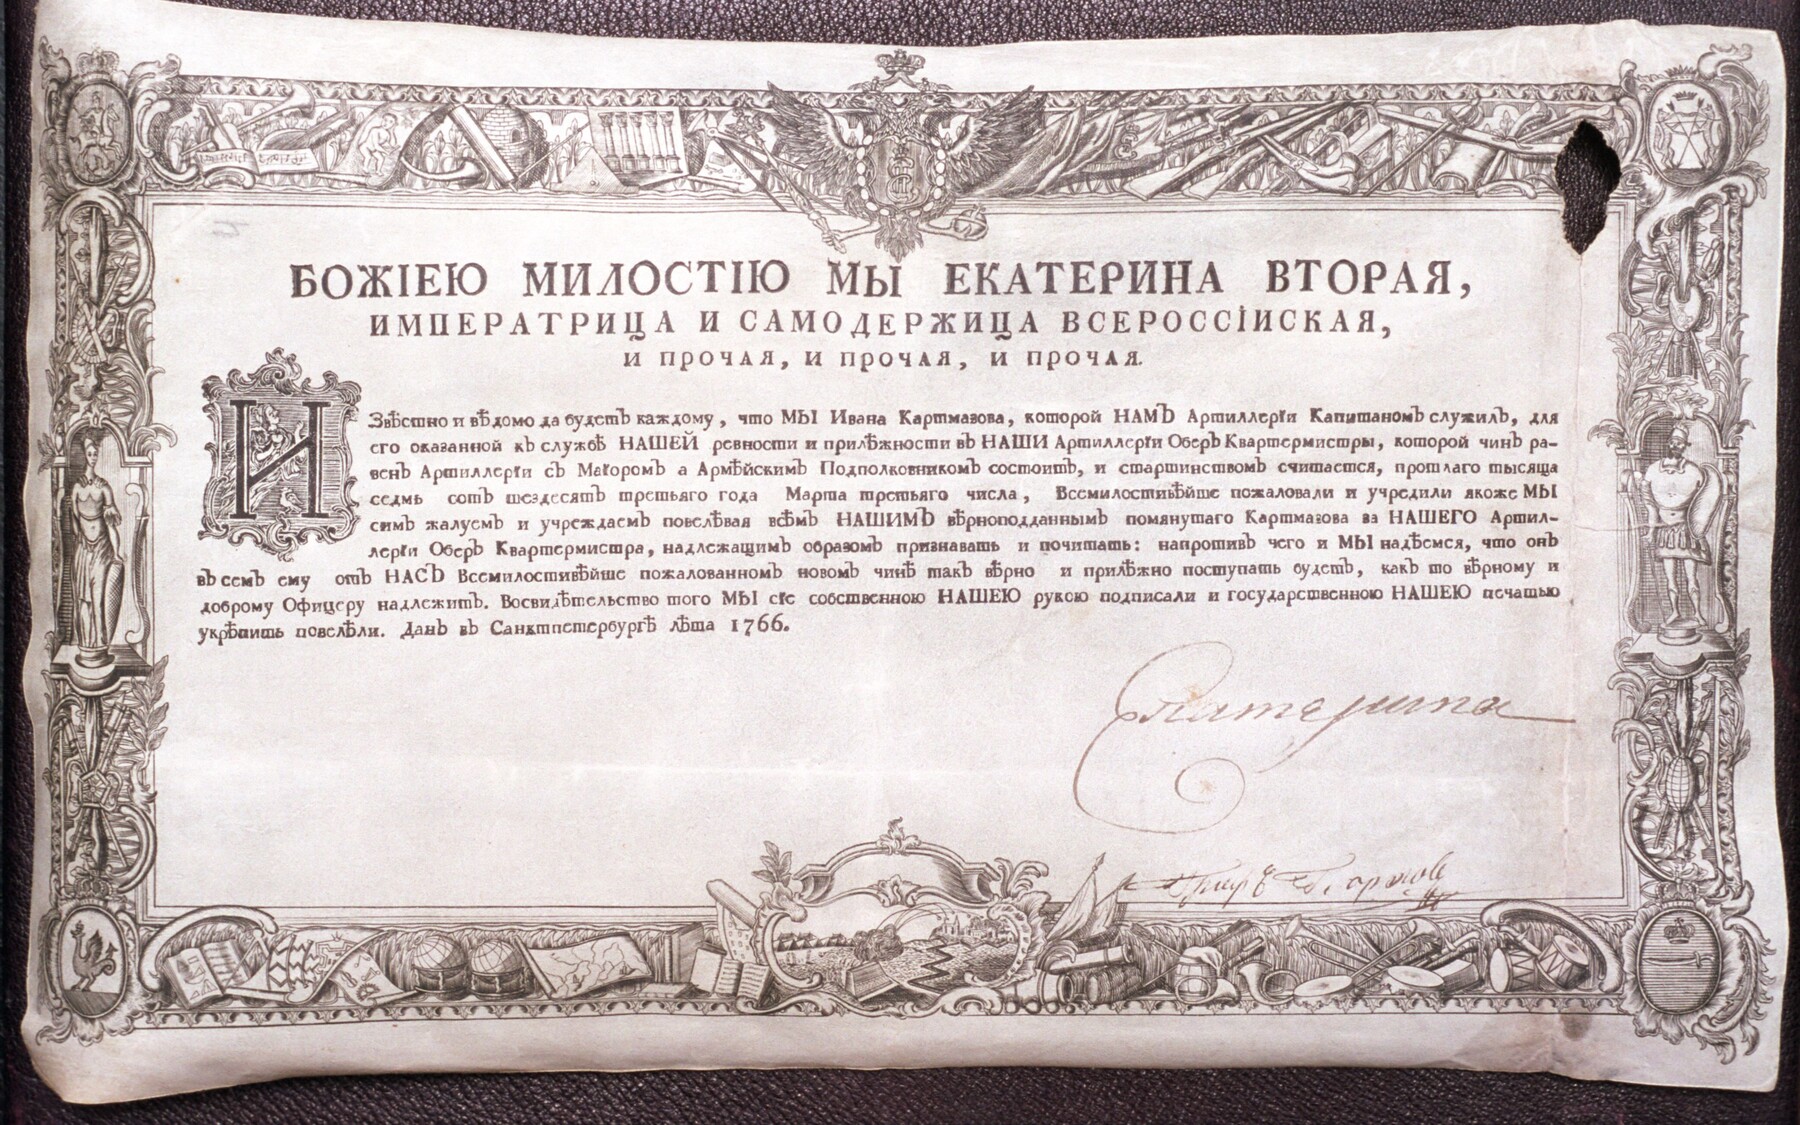 БОЖІЕЮ МИЛОСТІЮ МЫ ЕКАТЕРИНА ВТОРАЯ,
ИМПЕРАТРИЦА И САМОДЕРЖИЦА ВСЕРОССІИСКАЯ,
И ПРОЧАЯ, И ПРОЧАЯ, И ПРОЧАЯ.
ИЗвѣстно и вѣдомо да будетъ каждому, что МЫ Ивана Картмазова, которой НАМЪ Артиллеріи Капитаномъ служилъ, для
его оказанной къ службѣ НАШЕЙ ревности и прилѣжности въ НАШИ Артиллеріи Оберъ Квартермистры, которой чинъ ра-
венъ Артиллеріи съ Маіоромъ а Армѣйскимъ Подполковникомъ состоитъ, и старшинствомъ считается, протлаго тысяща
седмь сотъ шездесятъ третьяго года Марта третьяго числа, Всемилостивѣйше пожаловали и учредили якоже МЫ
симъ жалуемъ и учреждаемъ повелѣвая всѣмъ НАШИМЪ вѣрноподданнымъ помянутаго Картмазова за НАШЕГО Артил-
леріи Оберъ Квартермистра, надлежащимъ образомъ признавать и почитать: напротивъ чего и МЫ надѣемся, что онъ
въ семъ ему отъ НАСЪ Всемилостивѣйше пожалованномъ новомъ чинѣ такъ вѣрно и прилѣжно поступать будетъ, какъ то вѣрному и
доброму Офицеру надлежитъ. Восвидѣтельство того МЫ сіе собственною НАШЕЮ рукою подписали и государственною НАШЕЮ печатью
укрѣпить повелѣли. Данъ въ Санктпетербургѣ лѣта 1766.
Екатерина